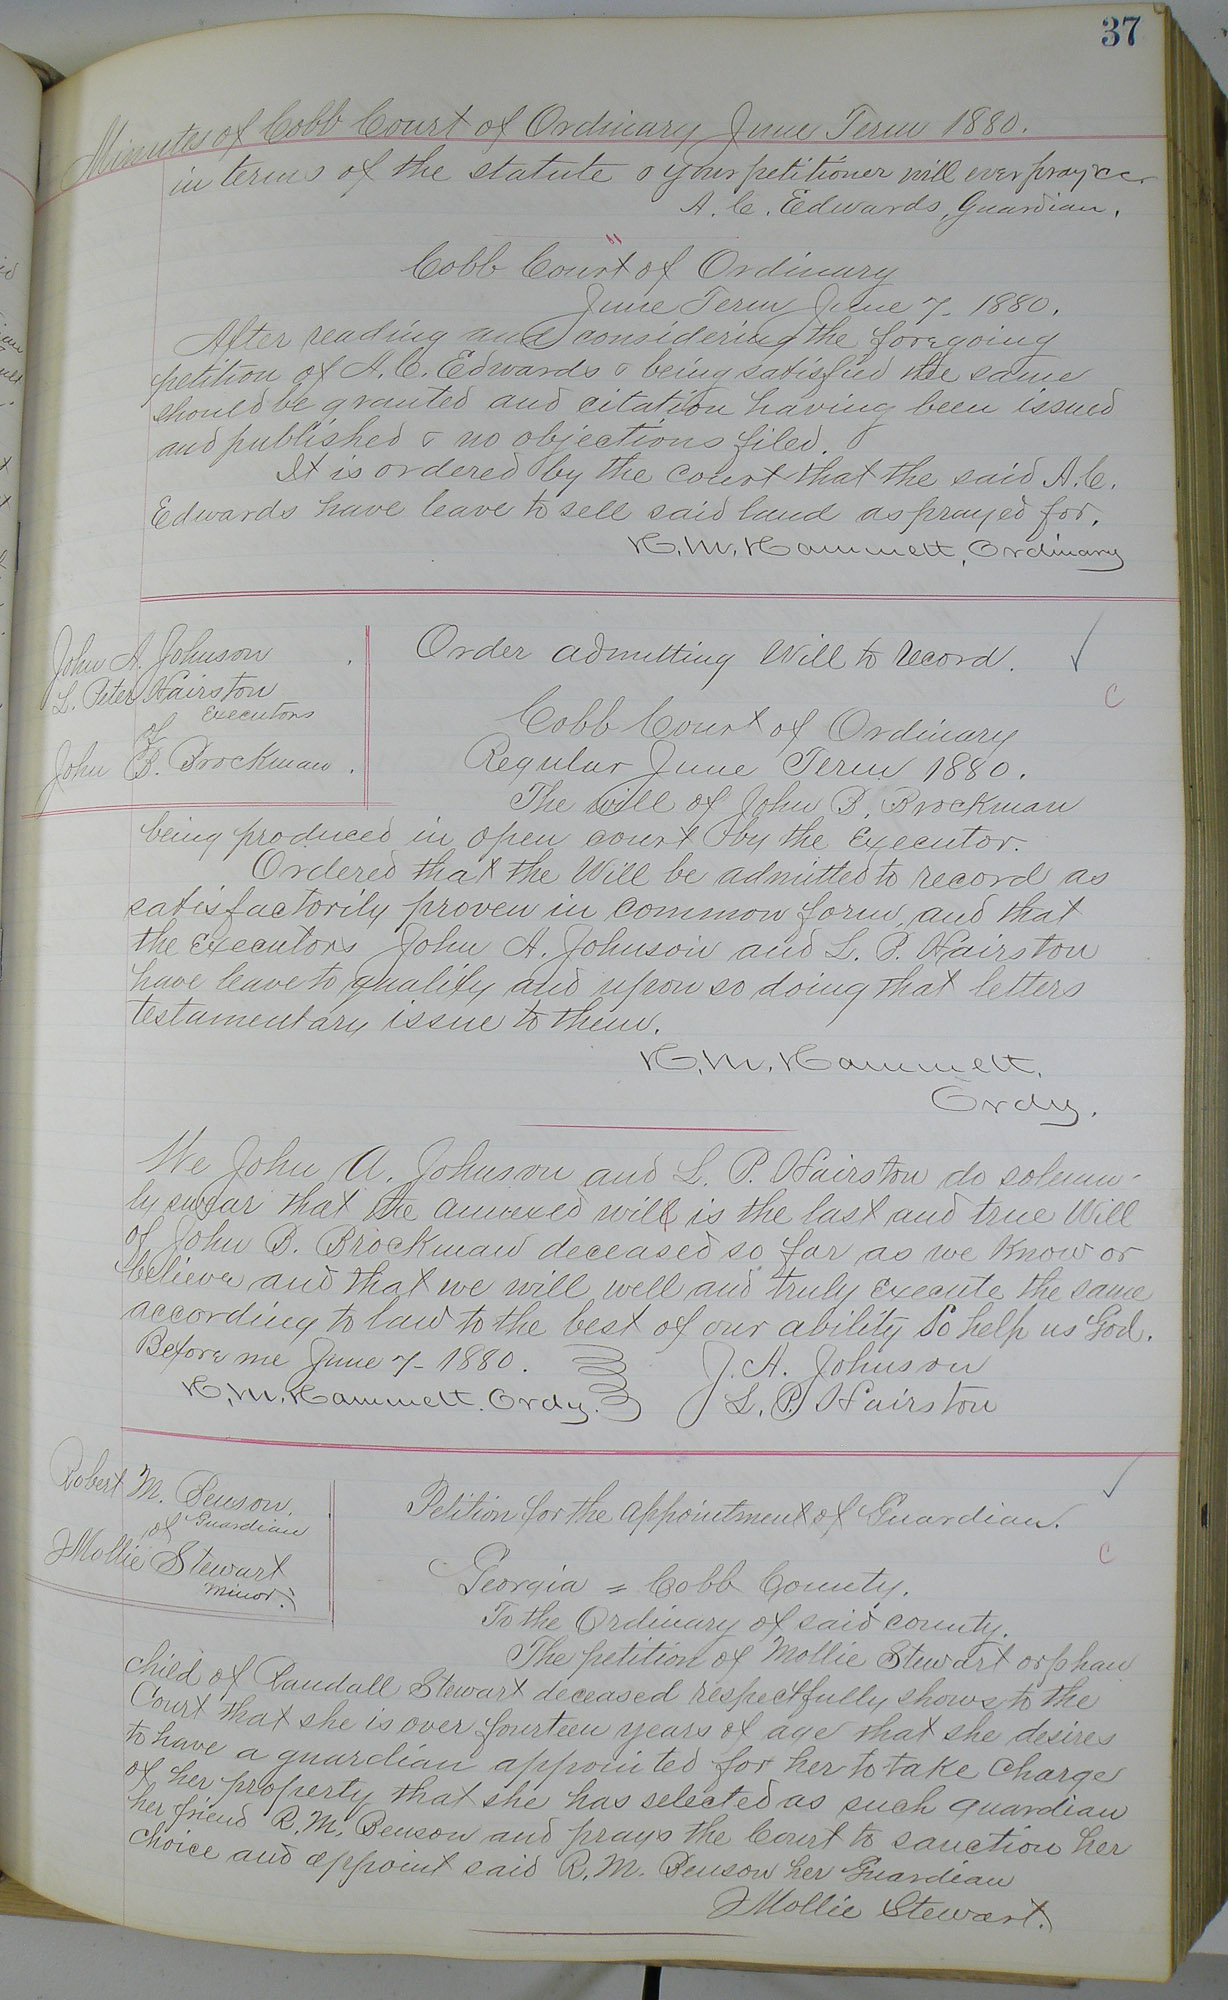 37
Minutes of Cobb Court of Ordinary June Term 1880.
in terms of the statute & your petitioner will ever pray &c.
A. C. Edwards, Guardian.
Cobb Court of Ordinary
June Term June 7- 1880.
After reading and considering the foregoing
petition of A. C. Edwards & being satisfied the same
should be granted and citation having been issued
and published & no objections filed.
It is ordered by the court that the said A. C.
Edwards have leave to sell said land as prayed for.
H. M. Hammett, Ordinary
John A. Johnson
L. Peter Hairston
Executors
of
John B. Brockman.
Order admitting Will to record.
C
Cobb Court of Ordinary
Regular June Term 1880.
The will of John B. Brockman
being produced in open court by the Executor.
Ordered that the Will be admitted to record as
satisfactorily proven in common form, and that
the Executors John A. Johnson and L. P. Hairston
have leave to qualify and upon so doing that letters
testamentary issue to them.
H. M. Hammett.
Ordy.
We John A. Johnson and L. P. Hairston do solemn-
ly swear that the annexed will is the last and true Will
of John B. Brockman deceased so far as we know or
believe and that we will well and truly execute the same
according to law to the best of our ability So help us God.
Before me June 7- 1880.
H. M. Hammett. Ordy.
J. A. Johnson
L. P. Hairston
Robert M. Benson
Guardian
of
Mollie Stewart
minor.
Petition for the appointment of Guardian.
C
Georgia = Cobb County.
To the Ordinary of said county.
The petition of Mollie Stewart orphan
child of Randall Stewart deceased respectfully shows to the
Court that she is over fourteen years of age that she desires
to have a guardian appointed for her to take charge
of her property that she has selected as such guardian
her friend R. M. Benson and prays the Court to sanction her
choice and appoint said R. M. Benson her Guardian
Mollie Stewart.